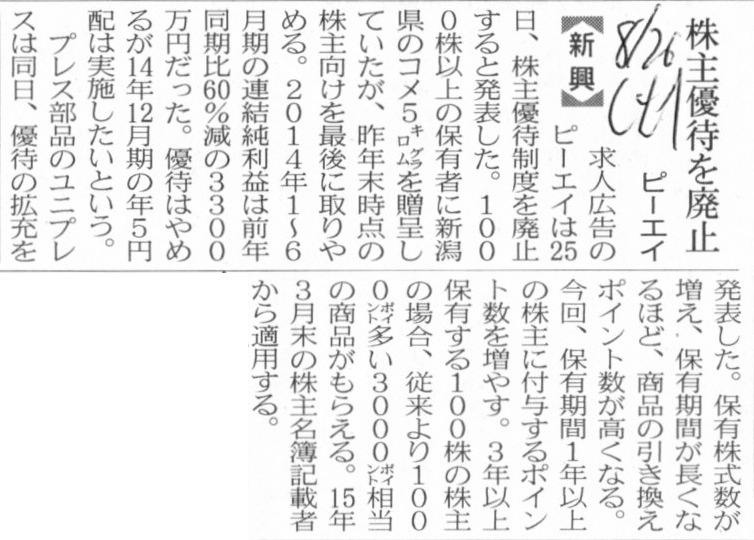 株主優待を廃止
ピーエイ
8/26
新興
求人広告の
ピーエイは25
日、株主優待制度を廃止
すると発表した。100
0株以上の保有者に新潟
県のコメ5キログラムを贈呈し
ていたが、昨年末時点の
株主向けを最後に取りや
める。2014年1〜6
月期の連結純利益は前年
同期比60%減の3300
万円だった。優待はやめ
るが14年12月期の年5円
配は実施したいという。
プレス部品のユニプレ
スは同日、優待の拡充を
発表した。保有株式数が
増え、保有期間が長くな
るほど、商品の引き換え
ポイント数が高くなる。
今回、保有期間1年以上
の株主に付与するポイン
ト数を増やす。3年以上
保有する100株の株主
の場合、従来より100
0ポイント多い3000ポイント相当
の商品がもらえる。15年
3月末の株主名簿記載者
から適用する。